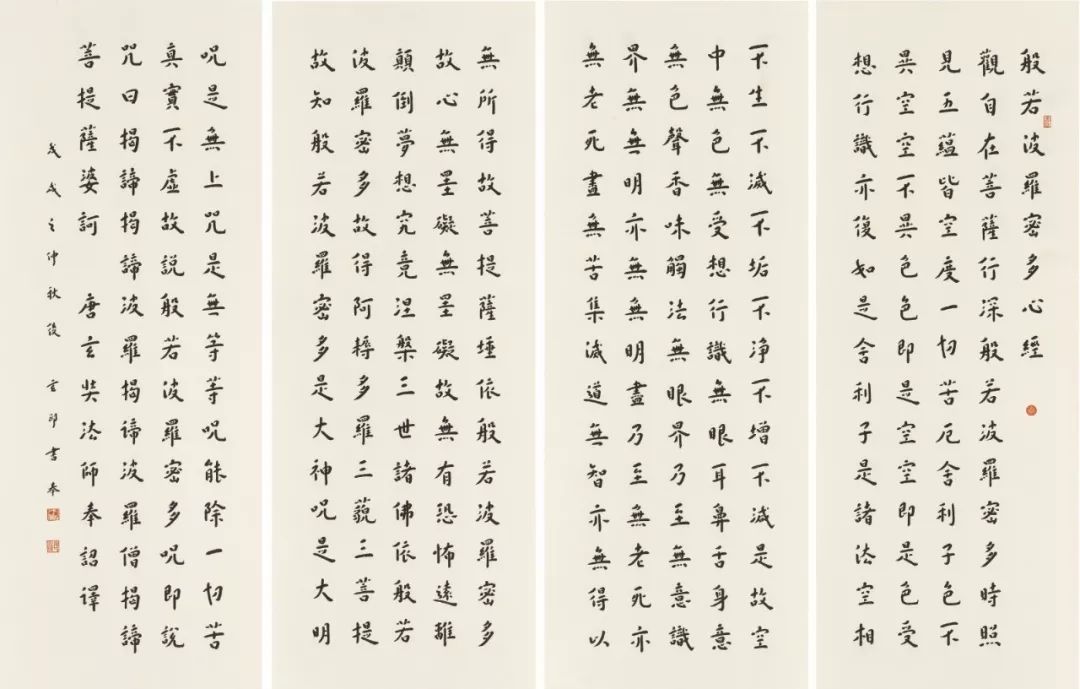 般若波羅密多心經
觀自在菩薩行深般若波羅密多時照
見五蘊皆空度一切苦厄舍利子色不
異空空不異色色即是空空即是色受
想行識亦復如是舍利子是諸法空相
不生不滅不垢不淨不增不減是故空
中無色無受想行識無眼耳鼻舌身意
無色聲香味觸法無眼界乃至無意識
界無無明亦無無明盡乃至無老死亦
無老死盡無苦集滅道無智亦無得以
無所得故菩提薩埵依般若波羅密多
故心無罣礙無罣礙故無有恐怖遠離
顛倒夢想究竟涅槃三世諸佛依般若
波羅密多故得阿耨多羅三藐三菩提
故知般若波羅密多是大神咒是大明
呪是無上咒是無等等呪能除一切苦
真實不虛故説般若波羅密多呪即説
咒曰揭諦揭諦波羅揭諦波羅僧揭諦
菩提薩婆訶 唐玄奘法師奉詔譯
戊戌之仲秋後 書奉